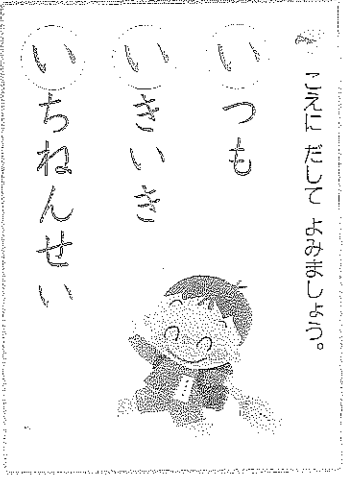 こえに だして よみましょう。
いつも
いきいき
いちねんせい